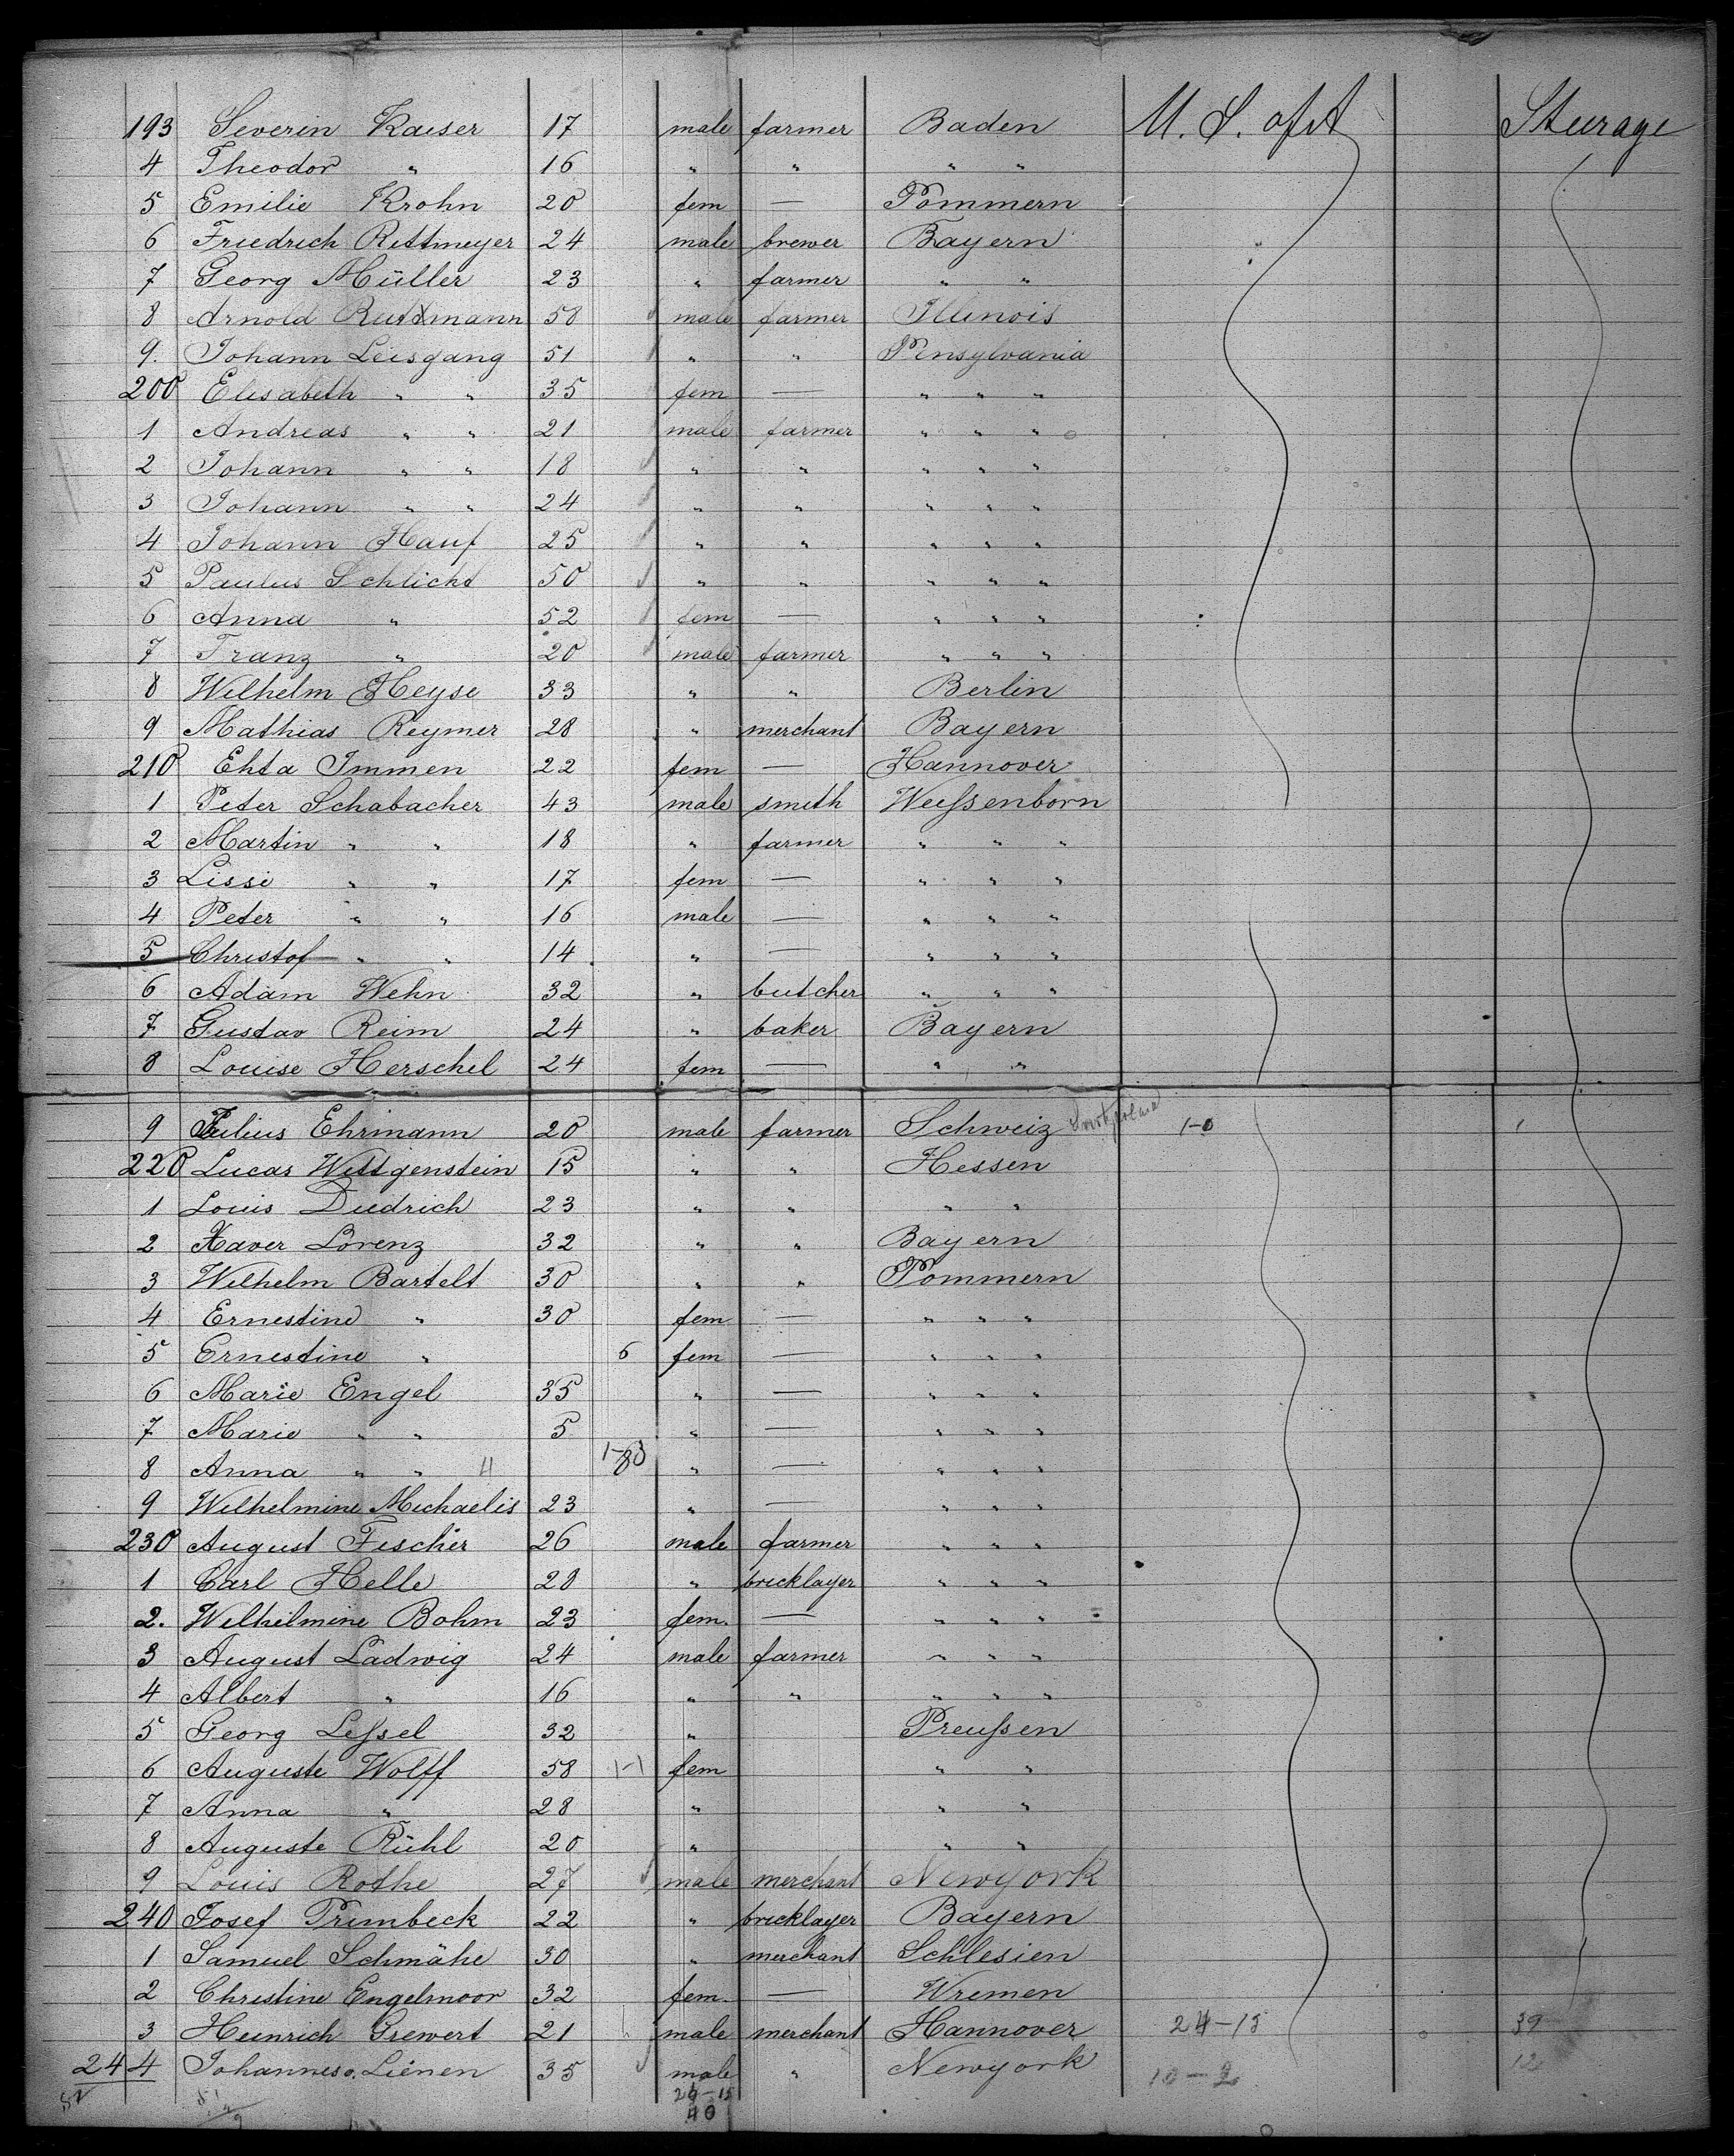 193 Severin Kaiser 17 male farmer Baden U. S. of A Steerage
4 Theodor " 16 " " " "
5 Emilie Krohn 20 fem — Pommern
6 Friedrich Rettmeyer 24 male brewer Bayern
7 Georg Müller 23 " farmer " "
8 Arnold Ruttmann 58 male farmer Illinois
9. Johann Leisgang 51 " " Pensylvania
200 Elisabeth " " 35 fem — " " "
1 Andreas " " 21 male farmer " " "
2 Johann " " 18 " " " " "
3 Johann " " 24 " " " " "
4 Johann Hauf 25 " " " " "
5 Paulus Schlicht 50 " " " " "
6 Anna " 52 fem — " " "
7 Franz " 20 male farmer " " "
8 Wilhelm Heyse 33 " " Berlin
9 Mathias Reymer 28 " merchant Bayern
210 Ehta Immen 22 fem — Hannover
1 Peter Schabacher 43 male smith Weissenborn
2 Martin " " 18 " farmer " " "
3 Lissi " " 17 fem — " " "
4 Peter " " 16 male — " " "
5 Christof " " 14 " — " " "
6 Adam Wehn 32 " butcher " " "
7 Gustav Reim 24 " baker Bayern
8 Louise Herschel 24 fem — " "
9 Julius Ehrmann 20 male farmer Schweiz 1-0 1
220 Lucas Wittgenstein 15 " " Hessen
1 Louis Diedrich 23 " " " "
2 Xaver Lorenz 32 " " Bayern
3 Wilhelm Bartelt 30 " " Pommern
4 Ernestine " 30 fem — " " "
5 Ernestine " 6 fem — " " "
6 Marie Engel 35 " — " " "
7 Marie " " 5 " — " " "
8 Anna " " 11 " — " " "
9 Wilhelmine Michaelis 23 " — " " "
230 August Fischer 26 male farmer " " "
1 Carl Helle 28 " bricklayer " " "
2. Wilhelmine Bohm 23 fem. — " " "
3 August Ladwig 24 male farmer " " "
4 Albert " 16 " " " " "
5 Georg Lessel 32 " Preussen
6 Auguste Wolff 58 1-1 fem " "
7 Anna " 28 " " "
8 Auguste Rühl 20 " " "
9 Louis Rothe 27 male merchant Newyork
240 Josef Primbeck 22 " bricklayer Bayern
1 Samuel Schmähe 30 " merchant Schlesien
2 Christine Engelmoor 32 fem. — Wremen
3 Heinrich Grewert 21 male merchant Hannover 24-15 39
244 Johannes v. Lienen 35 male " Newyork 10-2 12
24-15
40